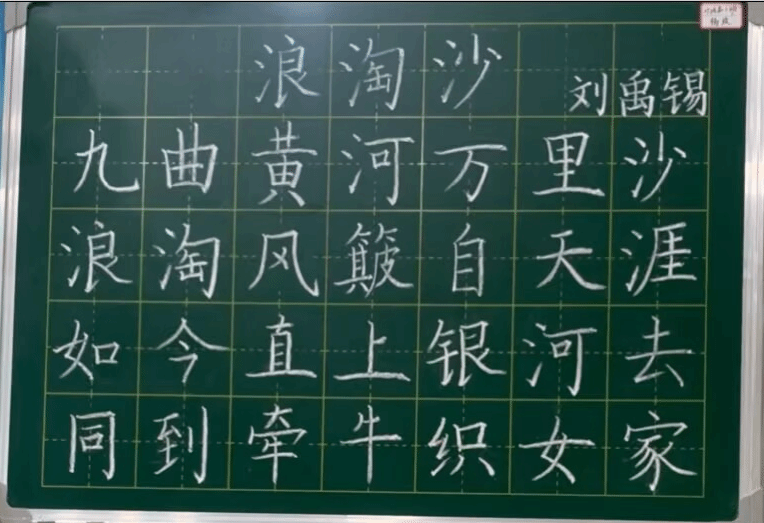 浪淘沙
刘禹锡
九曲黄河万里沙
浪淘风簸自天涯
如今直上银河去
同到牵牛织女家